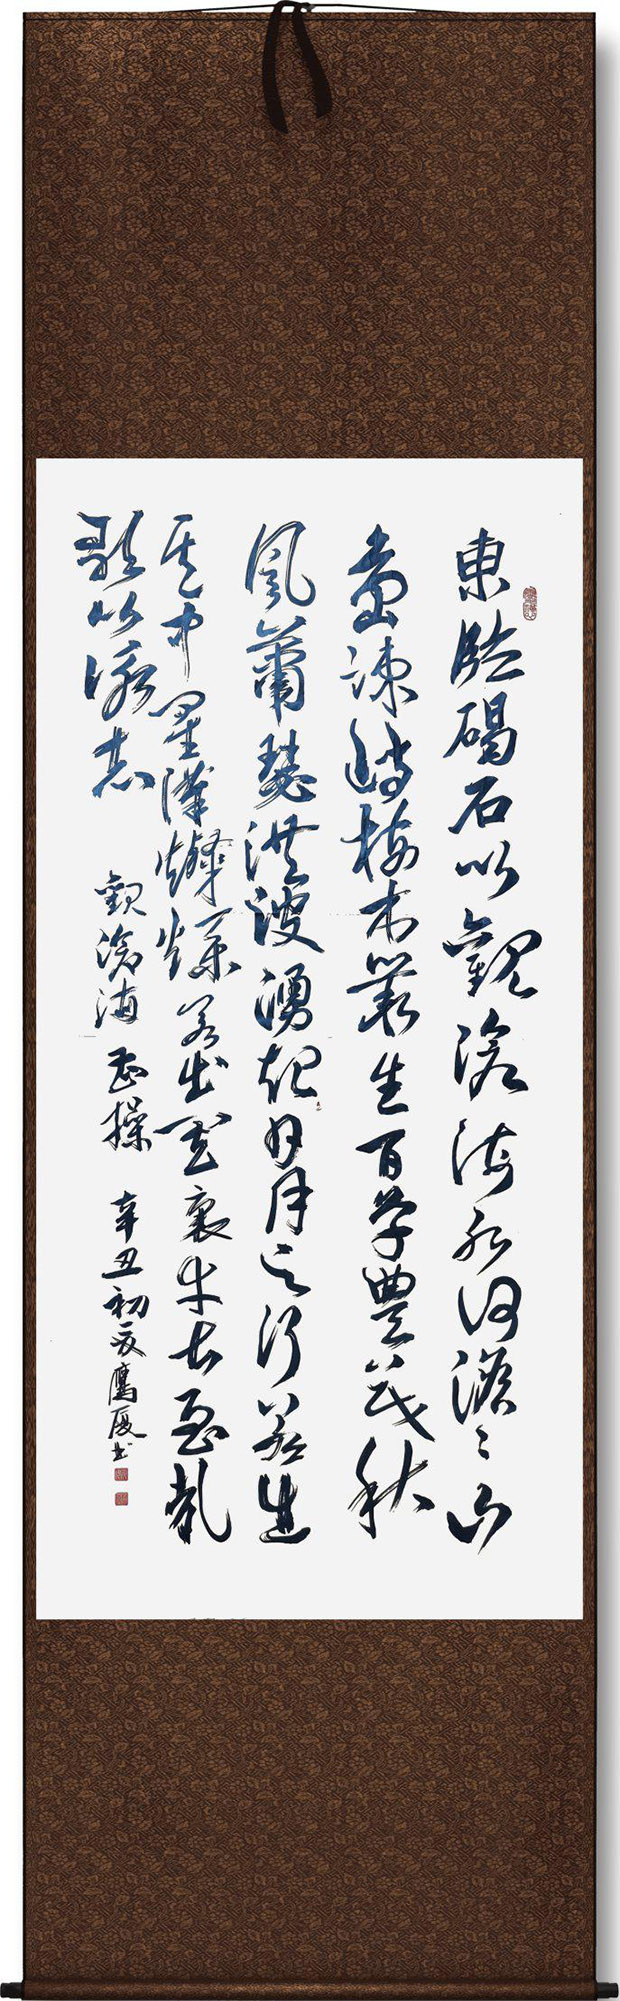 東臨碣石以觀滄海水何澹〻山
島竦峙樹木叢生百草豐茂秋
風蕭瑟洪波湧起日月之行若出
其中星漢燦爛若出其裏幸甚至哉
歌以詠志 觀滄海 曹操 辛丑初夏鷹廈書